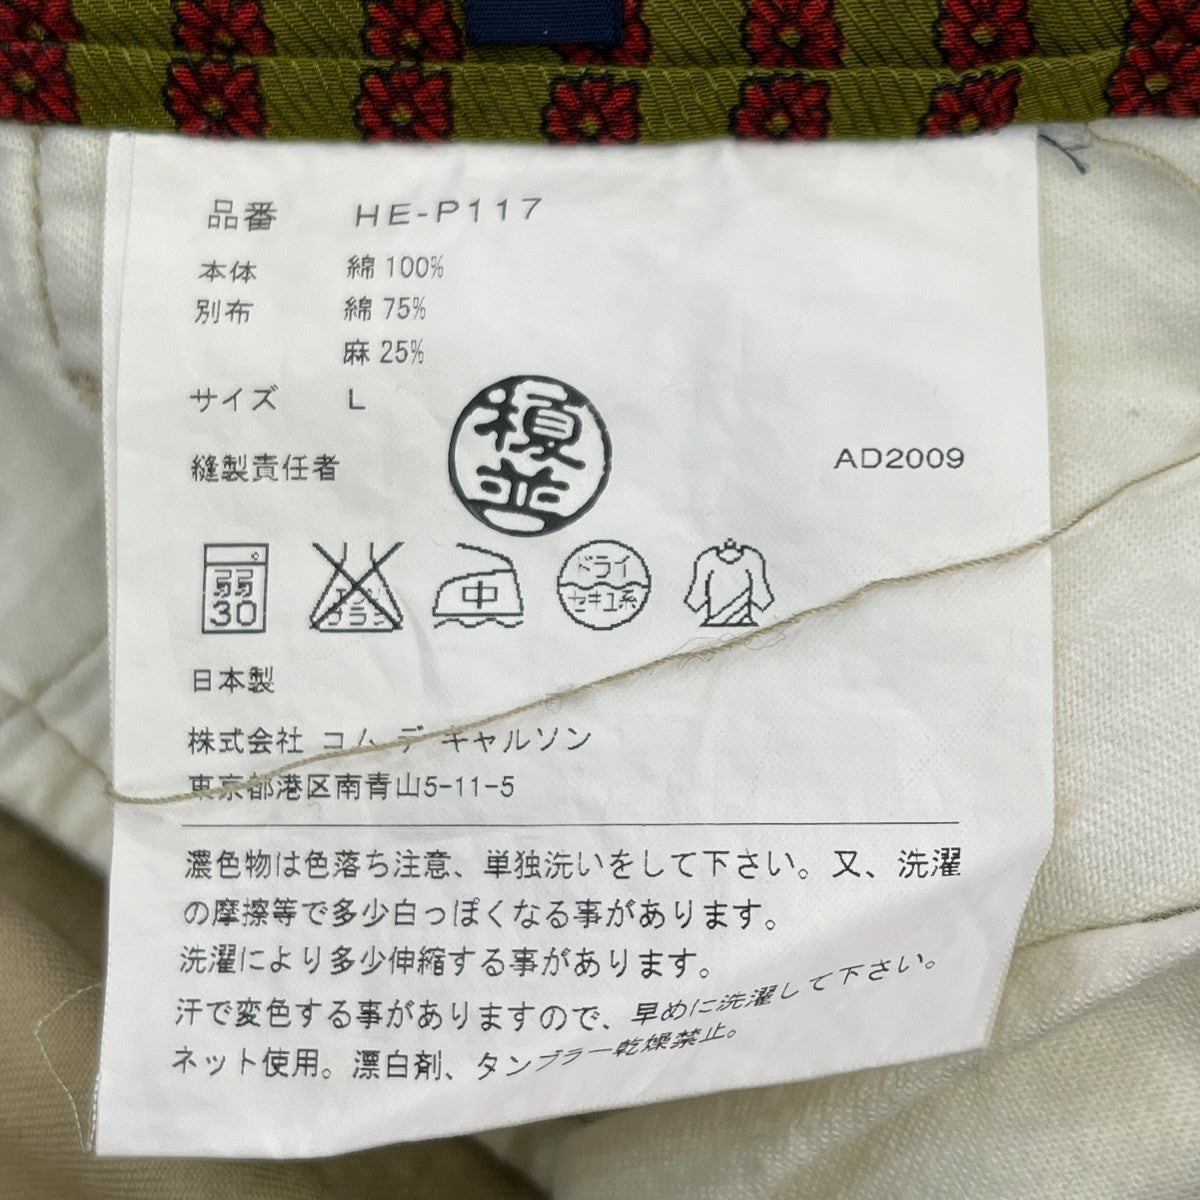 品番 HE-P117
本体 綿 100%
別布 綿 75%
麻 25%
サイズ L
縫製責任者
AD2009
弱
30
エンソ
フラシ
中
ドライ
セキユ系
日本製
株式会社 コム デ ギャルソン
東京都港区南青山5-11-5
濃色物は色落ち注意、単独洗いをして下さい。又、洗濯
の摩擦等で多少白っぽくなる事があります。
洗濯により多少伸縮する事があります。
汗で変色する事がありますので、早めに洗濯して下さい。
ネット使用。漂白剤、タンブラー乾燥禁止。